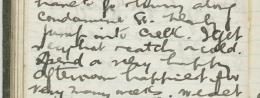 have to run along
Condamine St. nearly
jump into Creek. I get
very hot & catch a cold.
Spend a very happy
afternoon happiest for
very many weeks. We get